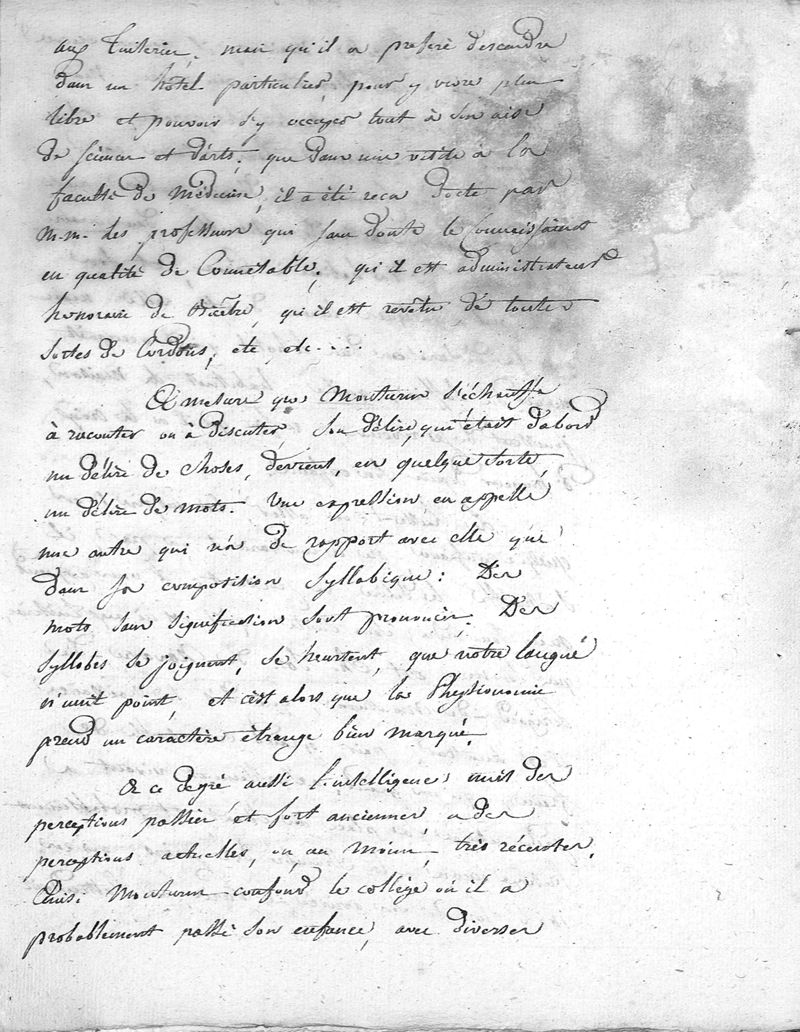 aux Tuileries. mais qu'il a preferé descendre
dans un hôtel particulier, pour y vivre plus
libre et pouvoir s'y occuper tout à son aise
de sciences et d'arts; que dans une visite à la
faculté de Médecine, il a été reçu docte par
m.m. les professeurs qui sans doute le Connaissaient
en qualité de Connétable; qu'il est administrateur
honoraire de qu'il est revêtu de toutes
sortes de Cordons, etc etc...
A mesure que Monturin s'échauffe
à raconter ou à discuter, son délire, qui était d'abord
un délire de choses, devient, en quelque sorte,
un délire de mots. Une expression en appelle
une autre qui n'a de rapport avec elle que
dans sa composition syllabique: Des
mots sans signification sont prononcés. Des
syllabes se joignent, se heurtent, que notre langue
n'unit point, et c'est alors que la Physionomie
prend un caractère étrange bien marqué.
A ce degré aussi l'intelligence unit des
perceptions passées et fort anciennes, a des
perceptions actuelles, ou, au moins, très récentes.
Ainsi Monturin confond le collège où il a
probablement passé son enfance, avec diverses